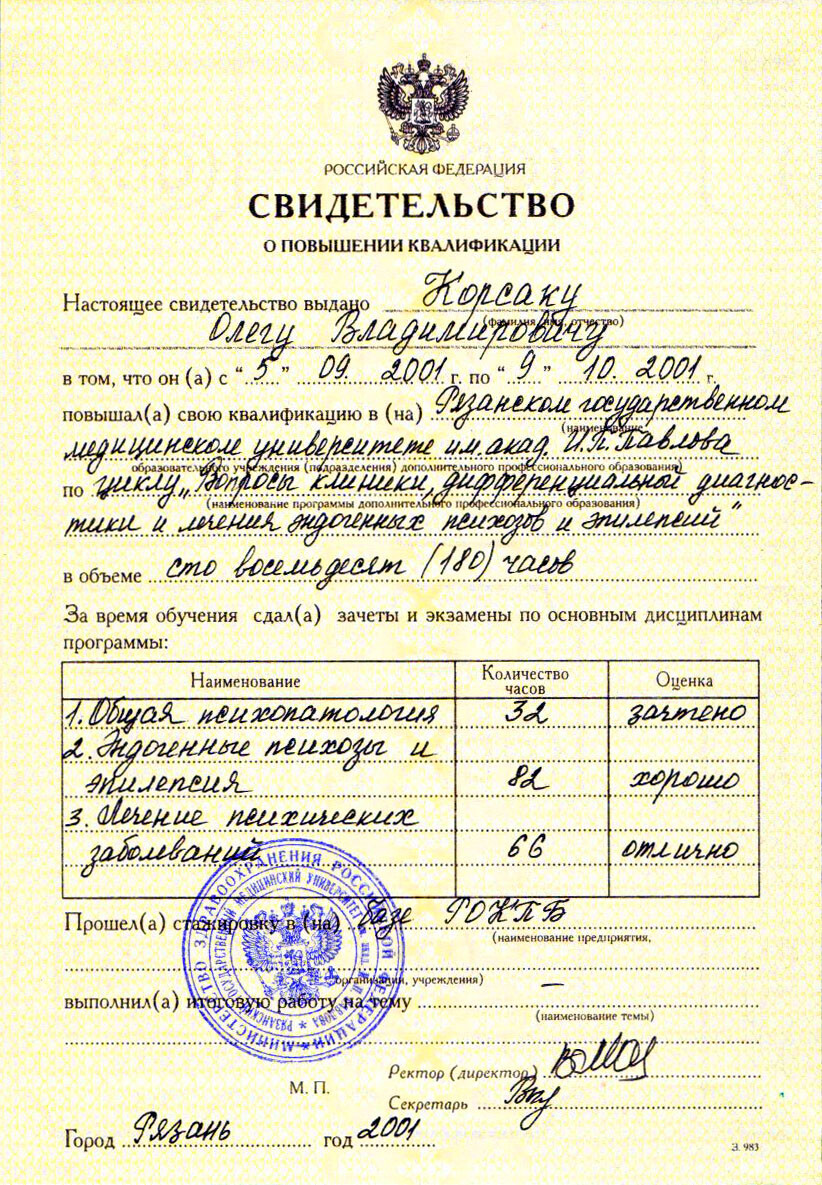 РОССИЙСКАЯ ФЕДЕРАЦИЯ
СВИДЕТЕЛЬСТВО
О ПОВЫШЕНИИ КВАЛИФИКАЦИИ
Настоящее свидетельство выдано Корсаку
(фамилия, имя, отчество)
Олегу Владимировичу
в том, что он (а) с "5" 09. 2001 г. по "9" 10. 2001 г.
повышал(а) свою квалификацию в (на) Рязанском государственном
(наименование
медицинском университете им. акад. И.П. Павлова
образовательного учреждения (подразделения) дополнительного профессионального образования)
по циклу „Вопросы клиники, дифференциальной диагнос-
(наименование программы дополнительного профессионального образования)
тики и лечения эндогенных психозов и эпилепсий"
в объеме сто восемьдесят (180) часов
За время обучения сдал(а) зачеты и экзамены по основным дисциплинам
программы:
Наименование Количество часов Оценка
1. Общая психопатология 32 зачтено
2. Эндогенные психозы и
эпилепсия 82 хорошо
3. Лечение психических
заболеваний 66 отлично
Прошел(а) стажировку в (на) базе РОКПБ
(наименование предприятия,
организации, учреждения)
выполнил(а) итоговую работу на тему –
(наименование темы)
МИНИСТЕРСТВО ЗДРАВООХРАНЕНИЯ РОССИЙСКОЙ ФЕДЕРАЦИИ
РЯЗАНСКИЙ ГОСУДАРСТВЕННЫЙ МЕДИЦИНСКИЙ УНИВЕРСИТЕТ им. акад. И.П. ПАВЛОВА
Ректор (директор)
М. П.
Секретарь
Город Рязань год 2001
З. 983